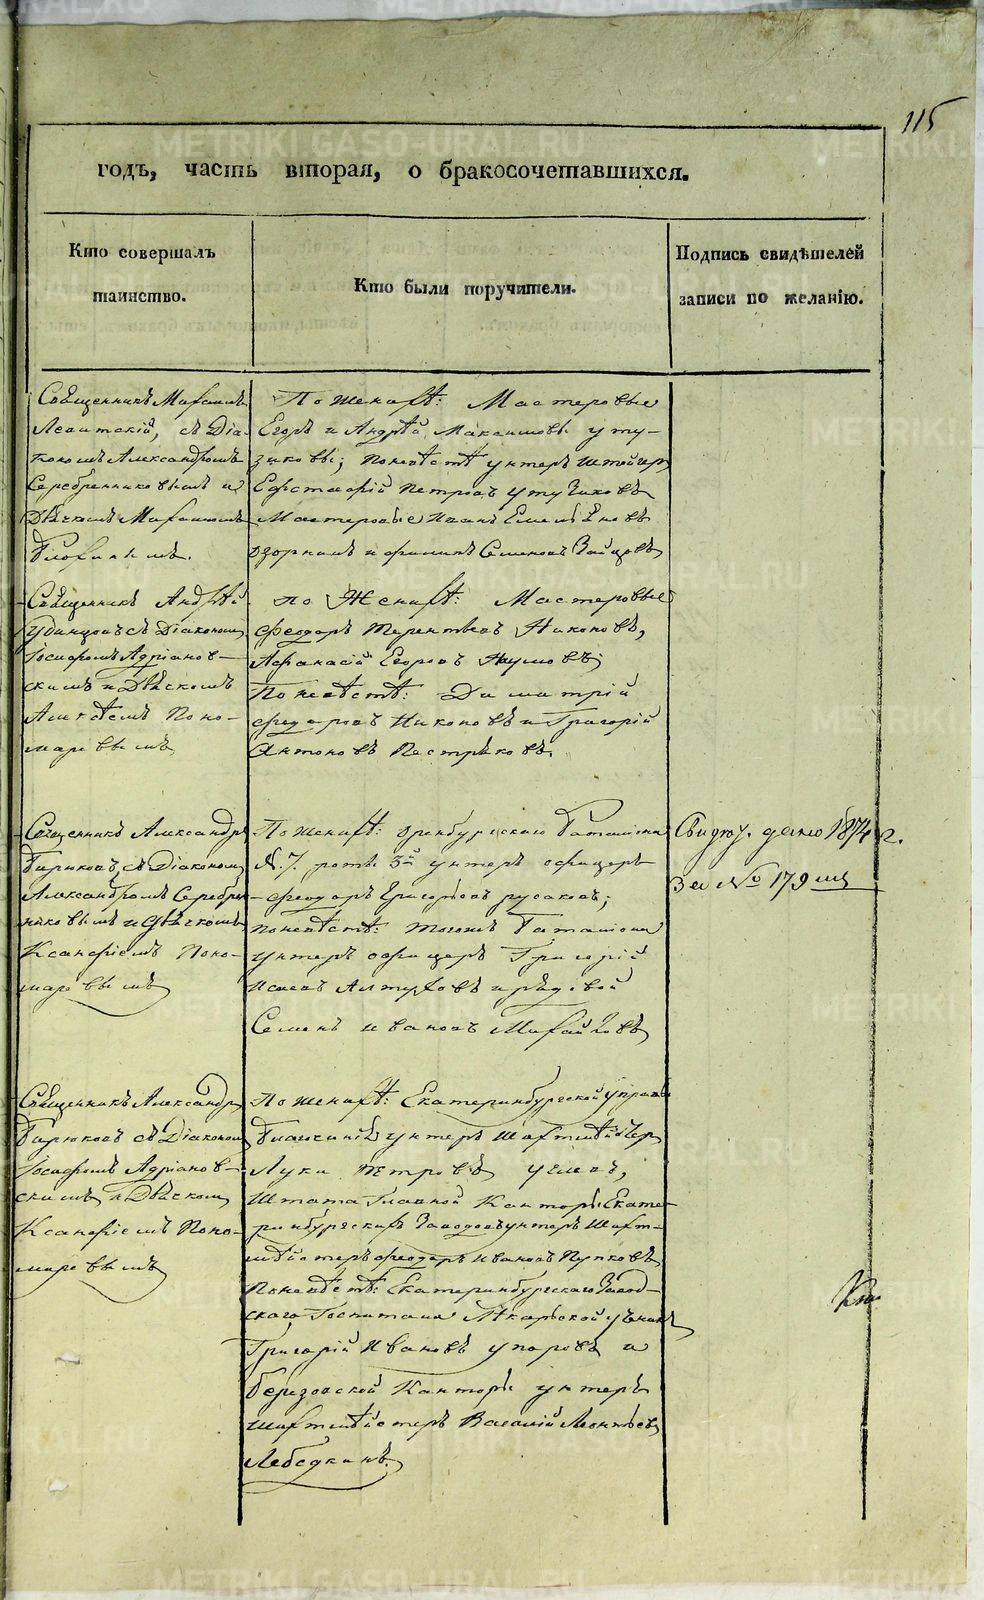 115
годъ, часть вторая, о бракосочетавшихся.
Кто совершалъ
таинство.
Кто были поручители.
Подпись свидѣтелей
записи по желанію.
Священникъ Михаилъ
Левитскій, съ Діа-
кономъ Александромъ
Серебренниковымъ и
Дьячкомъ Михаиломъ
По женихѣ: Мастеровые
Егоръ и Андрѣй Максимовы
по невѣстѣ унтеръ штейгеръ
Петровъ
Мастеровые Иванъ
Семеновъ Зайцовъ
Священникъ Андрѣй
Удинцовъ съ Діакономъ
Іосафомъ Адріанов-
скимъ и Дьячкомъ
Алексѣемъ Поно-
маревымъ
по Женихѣ: Мастеровые
Феодоръ Терентьевъ Никоновъ,
Афанасій Егоровъ Наумовъ;
По невѣстѣ: Димитрій
Федоровъ Никоновъ и Григорій
Антоновъ Пестряковъ.
Священникъ Александръ
Бирюковъ, съ Діакономъ
Александромъ Серебрен-
никовымъ и Дьячкомъ
Ксанфіемъ Поно-
маревымъ
По женихѣ: Оренбургскаго Баталіона
№ 7. роты 3й унтеръ офицеръ
Феодоръ Григорьевъ Русаковъ;
по невѣстѣ: того жъ Баталіона
унтеръ офицеръ Григорій
Исаевъ и рядовой
Семенъ Ивановъ Михайловъ
Свидѣт. дано 1874 г.
За № 179
Священникъ Александръ
Бирюковъ съ Діакономъ
Іосафомъ Адріанов-
скимъ и Дьячкомъ
Ксанфіемъ Поно-
маревымъ
По женихѣ: Екатеринбургской управы
Благочинія унтеръ Шахтмейстеръ
Лука Петровъ
Штата Главной Канторы Екате-
ринбургскихъ Заводовъ унтеръ Шахт-
мейстеръ Феодоръ Ивановъ Пупковъ
По невѣстѣ: Екатеринбургскаго Завод-
скаго Госпиталя Лѣкарской ученикъ
Григорій Ивановъ Упоровъ и
Березовской Канторы унтеръ
шахтмейстеръ Василій Леонтьевъ
Лебедкинъ.